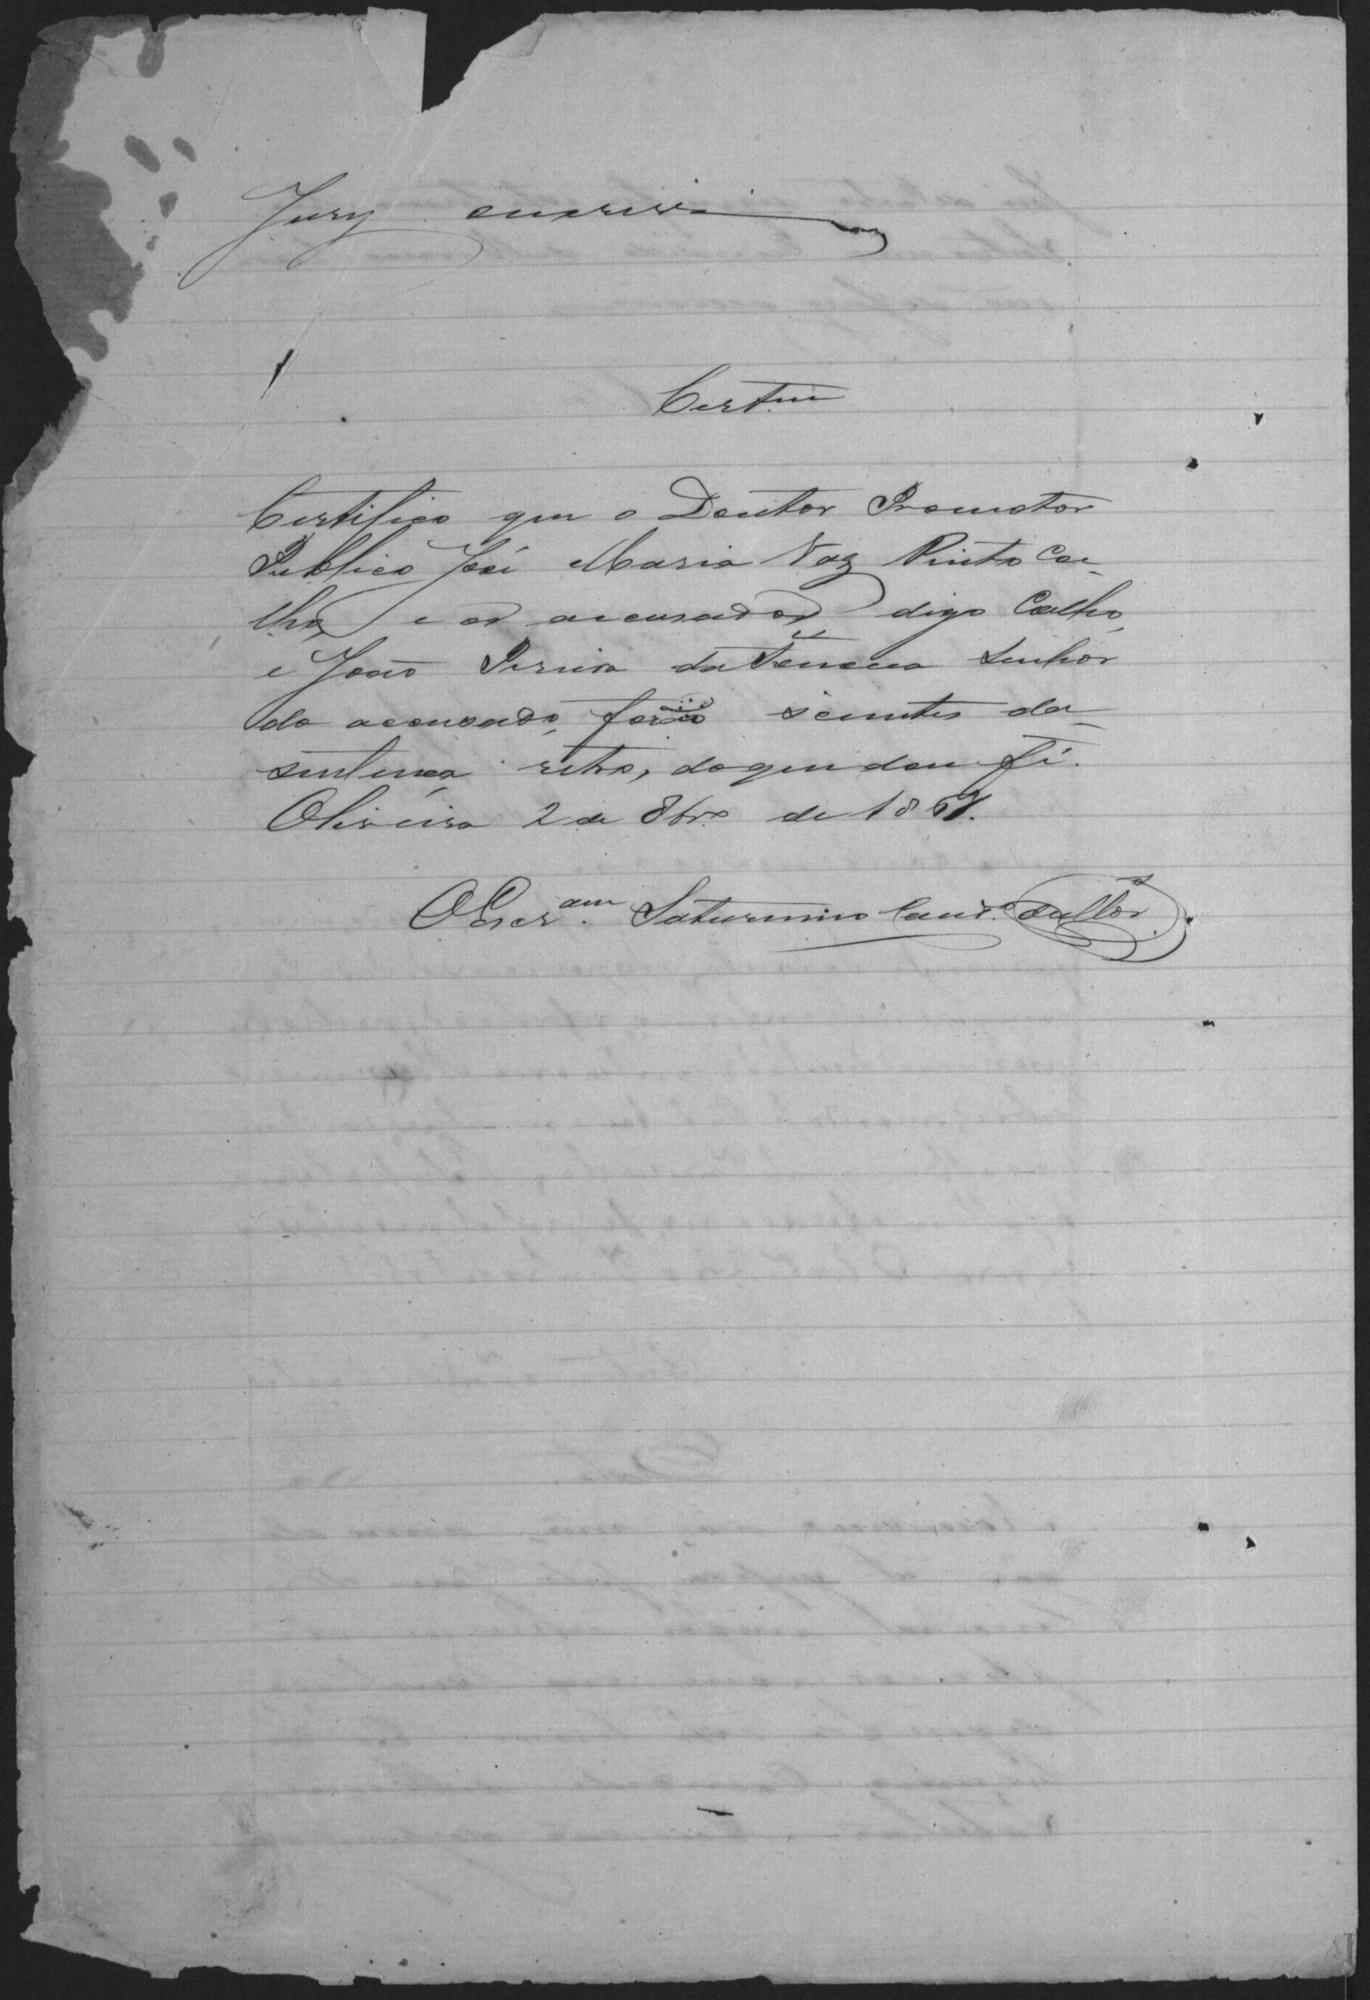 Jury escrevi
Certm
Certifico que o Doutor Promotor
Publico José Maria Vaz Pinto Coe-
lho, e os accusados, digo Coelho,
e João Pereira da Senhor
do accusado, forão scientes da
sentença retro, do que dou fé.
Oliveira 2 de 8bro de 186.
O Escram. Saturnino Cando